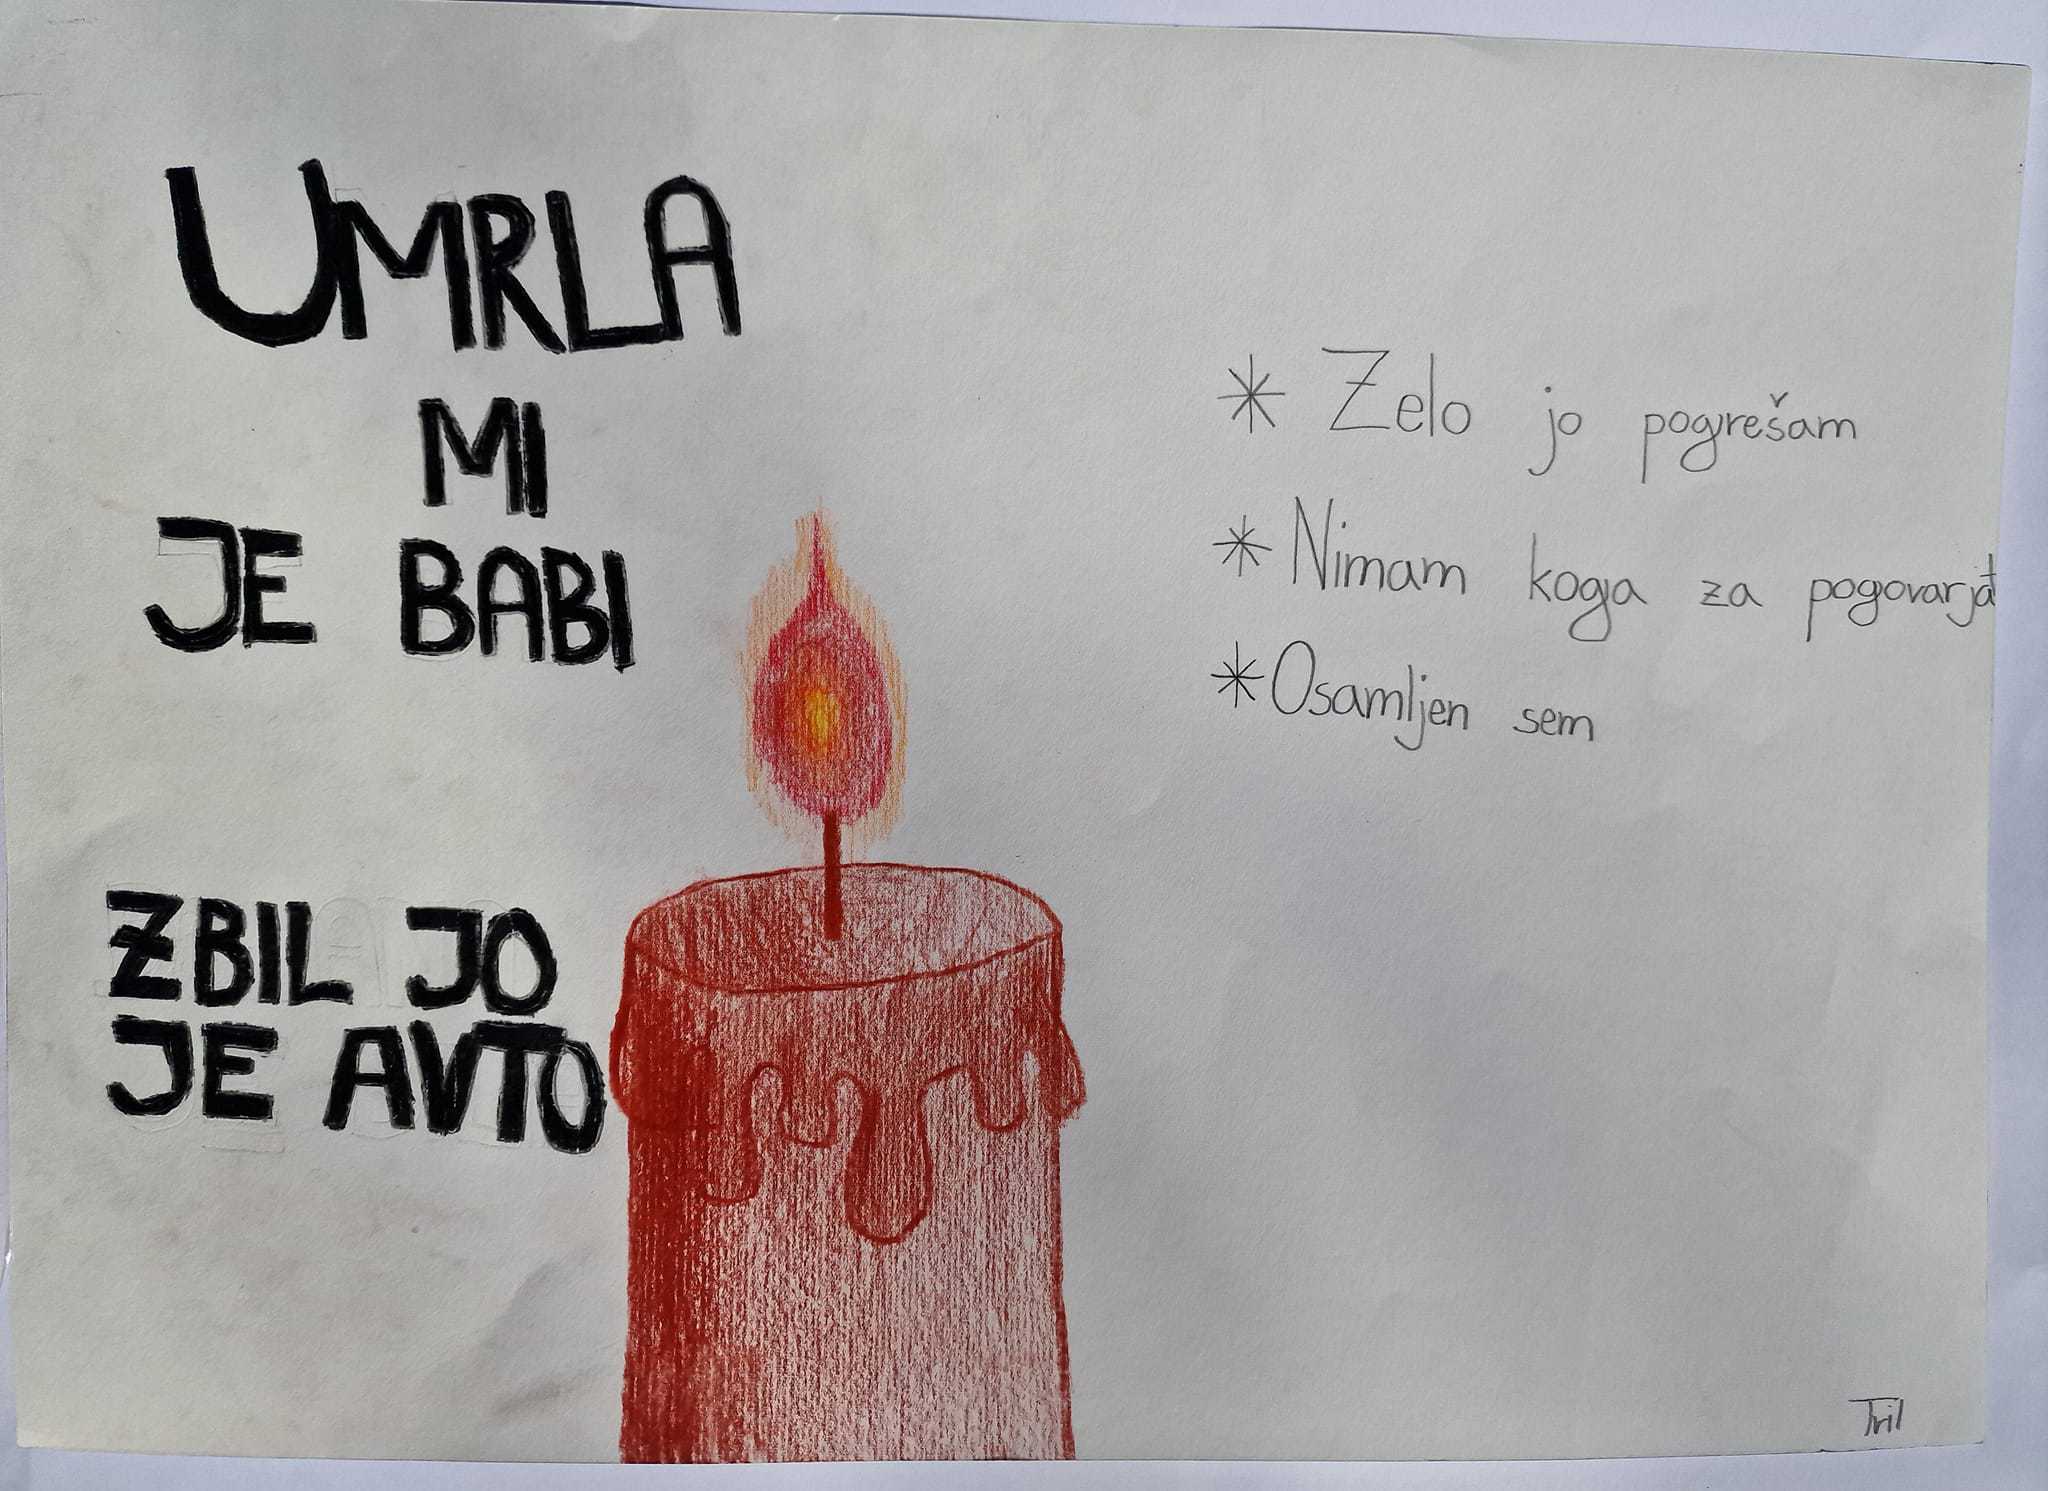 UMRLA
MI
JE BABI
ZBIL JO
JE AVTO
* Zelo jo pogrešam
* Nimam koga za pogovarjat
* Osamljen sem
Tril